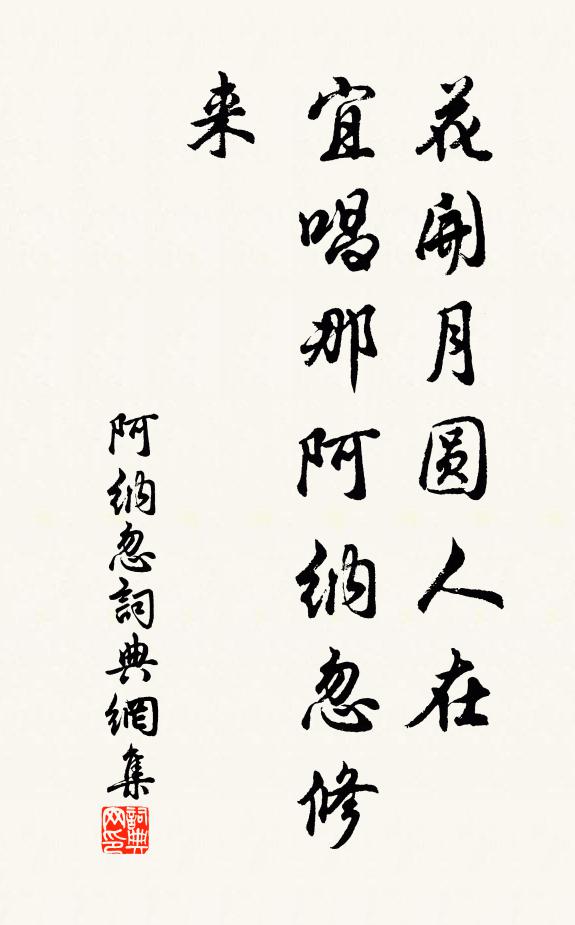 花開月圆人在
宜唱那阿纳忽修
来
阿纳忽詞典網集
詞典网印